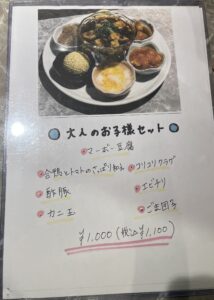 大人のお子様セット
・マーボー豆腐
・合鴨とトマトのさっぱり和え ・コリコリクラゲ
・酢豚 ・エビチリ
・カニ玉 ・ごま団子
¥1,000(税込¥1,100)